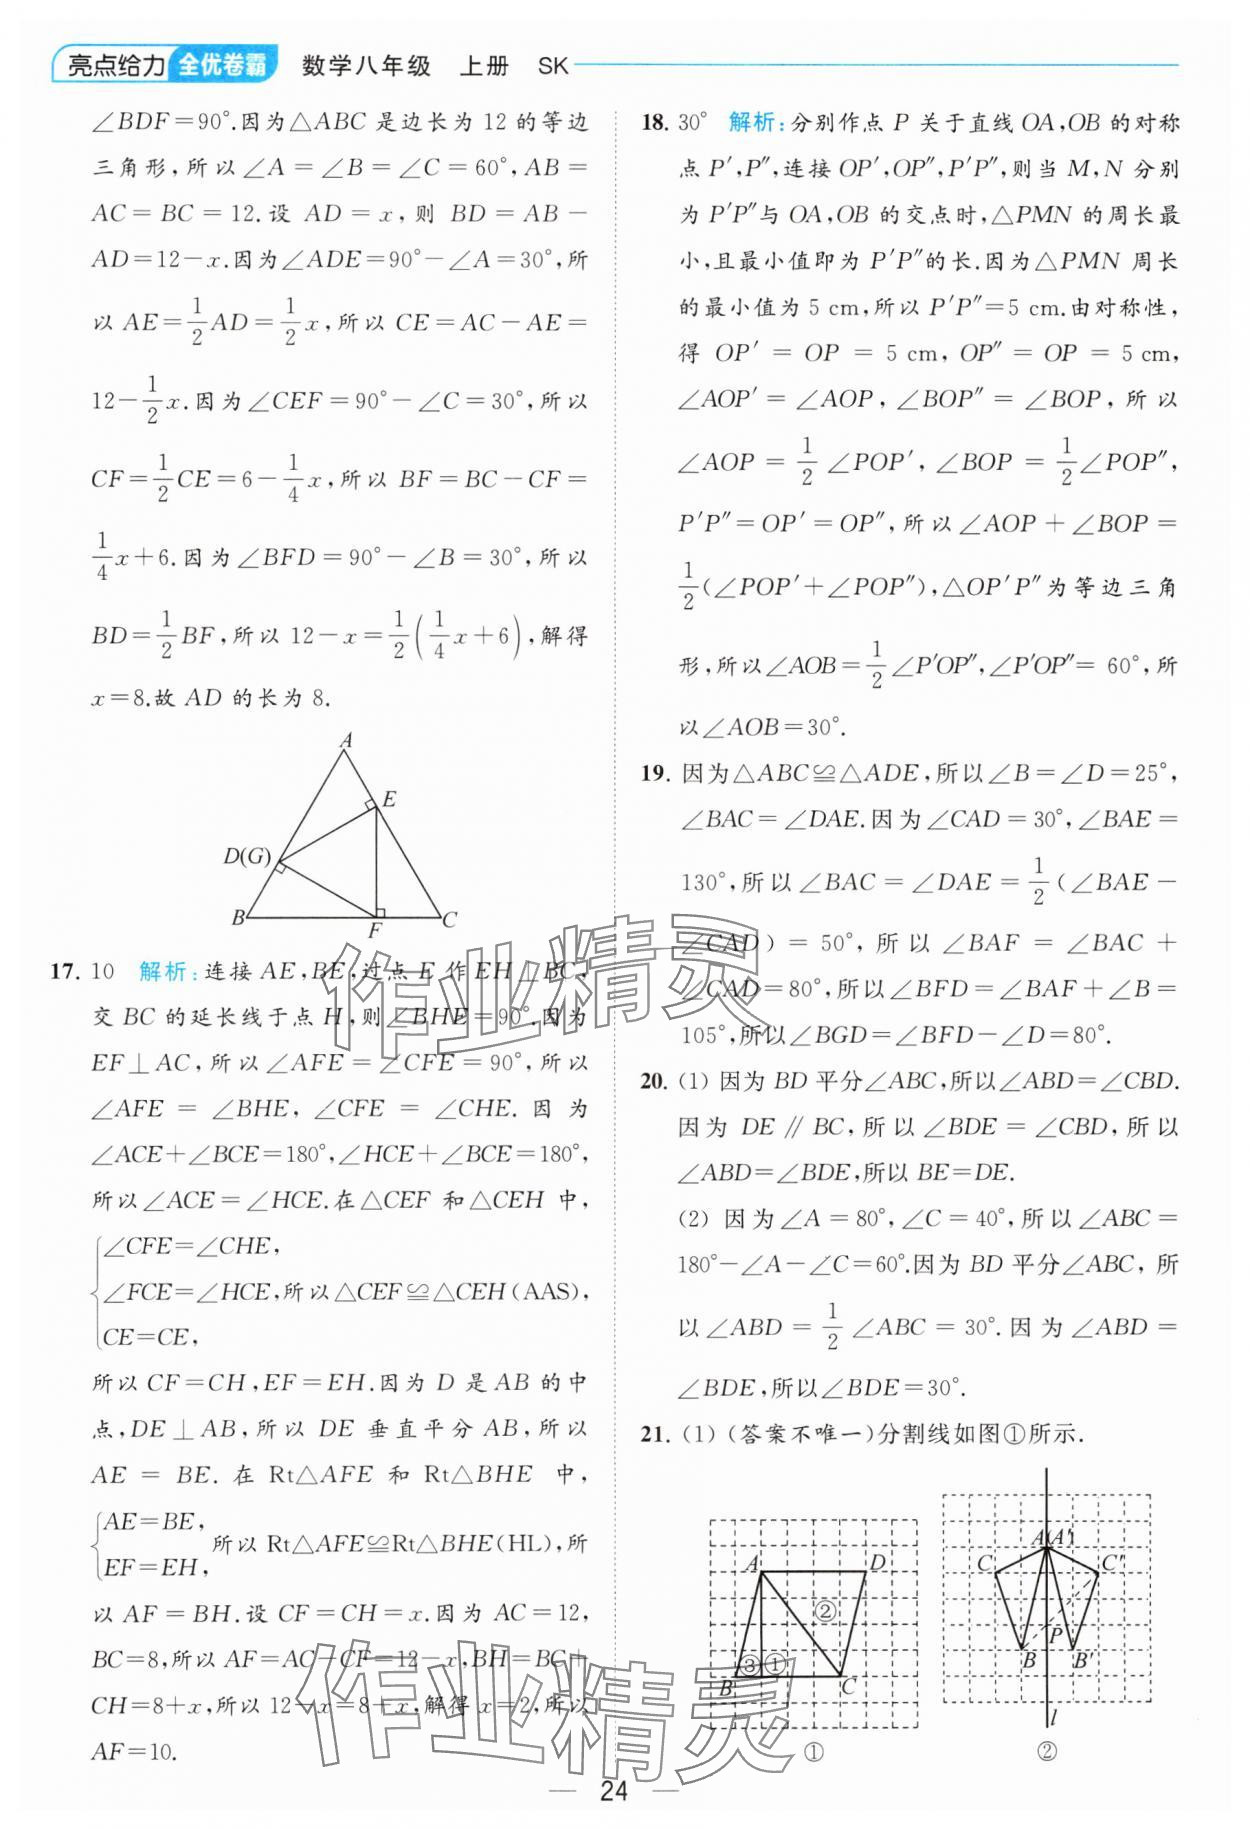 亮点给力 全优卷霸 数学八年级 上册 SK
∠BDF=90°.因为△ABC 是边长为 12 的等边
三角形,所以∠A=∠B=∠C=60°,AB=
AC=BC=12.设 AD=x,则 BD=AB-
AD=12-x.因为∠ADE=90°-∠A=30°,所
以 AE=1/2AD=1/2x,所以 CE=AC-AE=
12-1/2x.因为∠CEF=90°-∠C=30°,所以
CF=1/2CE=6-1/4x,所以 BF=BC-CF=
1/4x+6.因为∠BFD=90°-∠B=30°,所以
BD=1/2BF,所以 12-x=1/2(1/4x+6),解得
x=8.故 AD 的长为 8.
A
E
D(G)
B F C
17. 10 解析:连接 AE,BE,过点 E 作 EH⊥BC,
交 BC 的延长线于点 H,则∠BHE=90°.因为
EF⊥AC,所以∠AFE=∠CFE=90°,所以
∠AFE=∠BHE,∠CFE=∠CHE.因为
∠ACE+∠BCE=180°,∠HCE+∠BCE=180°,
所以∠ACE=∠HCE.在△CEF 和△CEH 中,
∠CFE=∠CHE,
∠FCE=∠HCE,所以△CEF≌△CEH(AAS),
CE=CE,
所以 CF=CH,EF=EH.因为 D 是 AB 的中
点,DE⊥AB,所以 DE 垂直平分 AB,所以
AE=BE.在 Rt△AFE 和 Rt△BHE 中,
AE=BE,
EF=EH,
所以 Rt△AFE≌Rt△BHE(HL),所
以 AF=BH.设 CF=CH=x.因为 AC=12,
BC=8,所以 AF=AC-CF=12-x,BH=BC+
CH=8+x,所以 12-x=8+x,解得 x=2,所以
AF=10.
18. 30° 解析:分别作点 P 关于直线 OA,OB 的对称
点 P′,P″,连接 OP′,OP″,P′P″,则当 M,N 分别
为 P′P″与 OA,OB 的交点时,△PMN 的周长最
小,且最小值即为 P′P″的长.因为△PMN 周长
的最小值为 5 cm,所以 P′P″=5 cm.由对称性,
得 OP′=OP=5 cm,OP″=OP=5 cm,
∠AOP′=∠AOP,∠BOP″=∠BOP,所以
∠AOP=1/2∠POP′,∠BOP=1/2∠POP″,
P′P″=OP′=OP″,所以∠AOP+∠BOP=
1/2(∠POP′+∠POP″),△OP′P″为等边三角
形,所以∠AOB=1/2∠P′OP″,∠P′OP″=60°,所
以∠AOB=30°.
19. 因为△ABC≌△ADE,所以∠B=∠D=25°,
∠BAC=∠DAE.因为∠CAD=30°,∠BAE=
130°,所以∠BAC=∠DAE=1/2(∠BAE-
∠CAD)=50°,所以∠BAF=∠BAC+
∠CAD=80°,所以∠BFD=∠BAF+∠B=
105°,所以∠BGD=∠BFD-∠D=80°.
20. (1) 因为 BD 平分∠ABC,所以∠ABD=∠CBD.
因为 DE∥BC,所以∠BDE=∠CBD,所以
∠ABD=∠BDE,所以 BE=DE.
(2) 因为∠A=80°,∠C=40°,所以∠ABC=
180°-∠A-∠C=60°.因为 BD 平分∠ABC,所
以∠ABD=1/2∠ABC=30°.因为∠ABD=
∠BDE,所以∠BDE=30°.
21. (1) (答案不唯一)分割线如图①所示.
A D
②
③ ①
B C
①
A(A′)
C C′
P
B B′
l
②
作业精灵
作业精灵
24